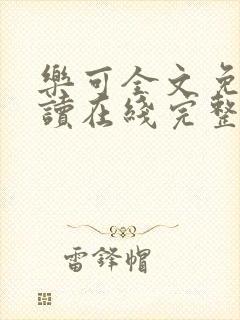 樂可全文免
讀在綫完整
雷鋒帽